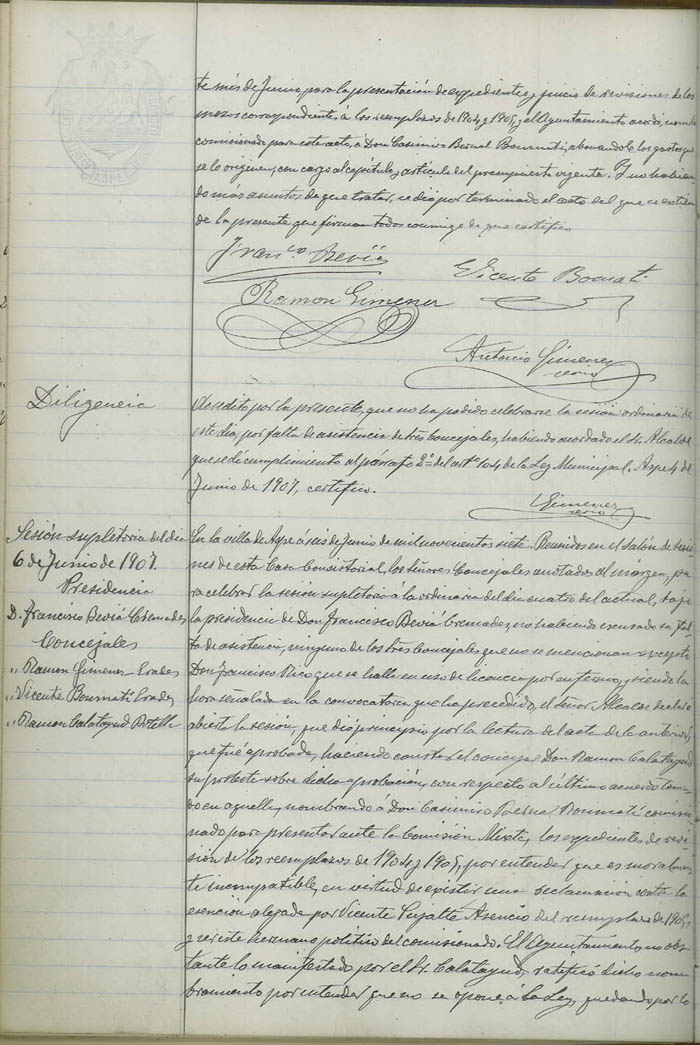 te mes de Junio, para la presentación de expedientes y juicio de revisiones de los
mozos correspondiente á los reemplazos de 1904 y 1905, y el Ayuntamiento acordó, nombrar
comisionado para este acto, á Don Casimiro Bernal Boumatí, abonandole los gastos que
se lo originen, con cargo al capítulo y artículo del presupuesto vigente. Y no habien-
do más asuntos de que tratar, se dió por terminado el acto del que se extien-
de la presente que firman todos conmigo de que certifico
Franco Beviá
Vicente Boumati
Ramon Gimenez
Antonio Gimenez
Srio
Diligencia
Acredito por la presente, que no ha podido celebrarse la sesión ordinaria de
este dia, por falta de asistencia de tres Concejales, habiendo acordado el Sr. Alcalde
que se dé cumplimiento al párrafo 2º del artº 104 de la Ley Municipal. Aspe 4 de
Junio de 1907, certifico.
Gimenez
Srio
Sesión supletoria del dia
6 de Junio de 1907.
Presidencia
D. Francisco Beviá Cremades
Concejales
" Ramon Gimenez Erades
" Vicente Boumatí Erades
" Ramon Calatayud Botella
En la villa de Aspe á seis de Junio de mil novecientos siete. Reunidos en el salón de sesio-
nes de esta Casa Consistorial, los señores Concejales anotados al márgen, pa-
ra celebrar la sesión supletoria á la ordinaria del dia cuatro del actual, bajo
la presidencia de Don Francisco Beviá Cremades, no habiendo escusado su fal-
ta de asistencia, ninguno de los tres Concejales que no se mencionan excepto
Don Francisco Rico que se halla en uso de licencia por enfermo, y siendo la
hora señalada en la convocatoria que ha precedido, el señor Alcalde declaró
abierta la sesión, que dió principio por la lectura del acta de la anterior,
que fué aprobada, haciendo constar el concejal Don Ramon Calatayud
su protesta sobre dicha aprobación, con respecto al último acuerdo toma-
do en aquella, nombrando á Don Casimiro Bernal Boumatí comisio-
nado para presentar ante la Comisión Mixta, los expedientes de revi-
sión de los reemplazos de 1904 y 1905, por entender que es moralmen-
te incompatible, en virtud de existir una reclamación contra la
esención alegada por Vicente Pujalte Asencio del reemplazo de 1905
y ser este hermano político del comisionado. El Ayuntamiento, no obs-
tante lo manifestado por el Sr. Calatayud, ratificó dicho nom-
bramiento por entender que no se opone á la Ley, quedando por lo